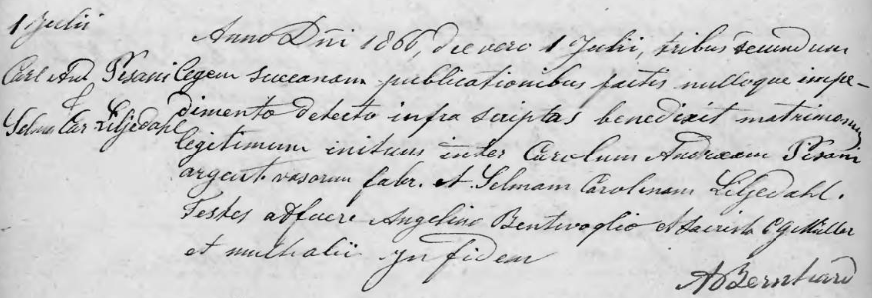 1 Julii
Carl And Pisani
&
Selma Car Liljedahl
Anno Dni 1866, die vero 1 Julii, tribus secundum
legem suecanam publicationibus factis nulloque impe-
dimento detecto infra scriptas benedixit matrimonium
legitimum initum inter Carolum Andream Pisani
argent. vasorum fabr. et Selmam Carolinam Liljedahl.
Testes adfuere Angelino Bentivoglio et sacrista C G Müller
et multi alii In fidem
A Bernhard